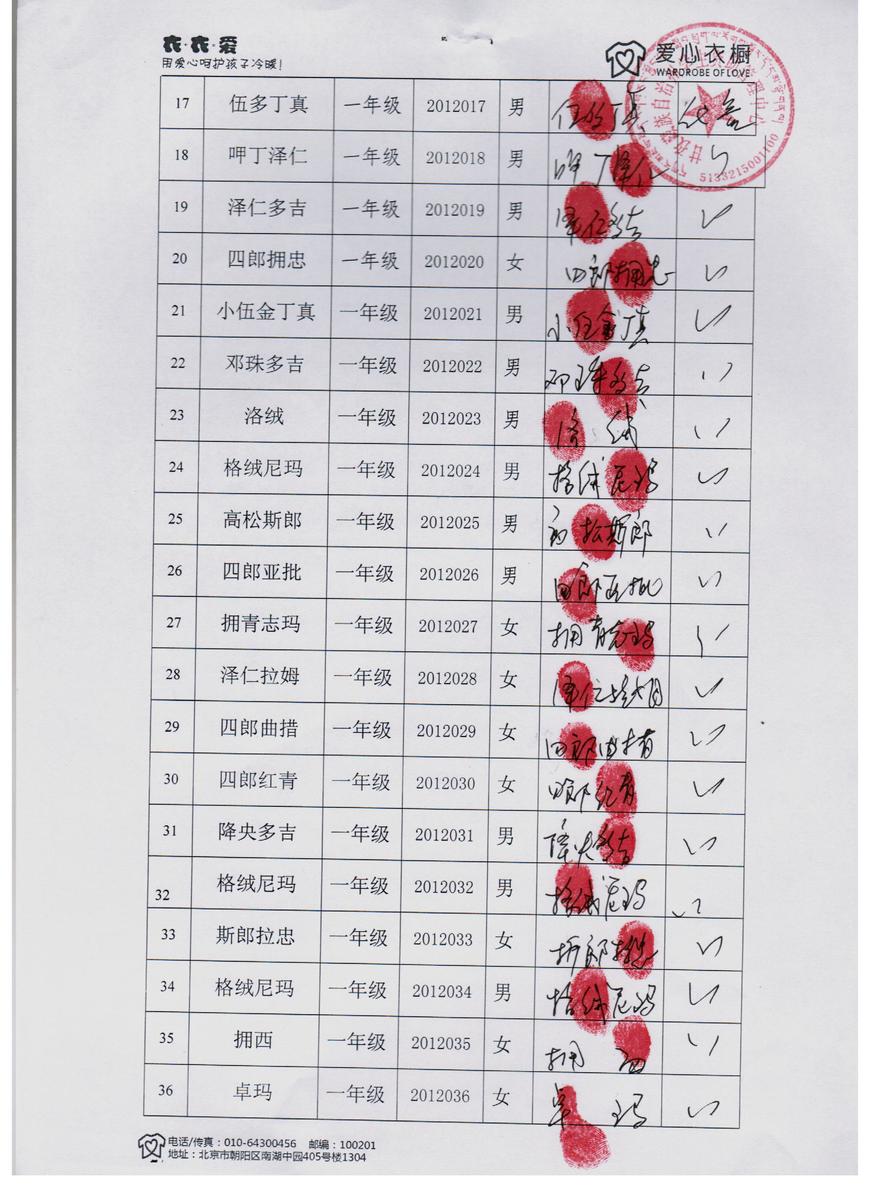 衣·衣·爱
用爱心呵护孩子冷暖!
爱心衣橱
WARDROBE OF LOVE
5133215001100
17 伍多丁真 一年级 2012017 男 伍多丁真
18 呷丁泽仁 一年级 2012018 男 呷丁泽仁
19 泽仁多吉 一年级 2012019 男 泽仁多吉
20 四郎拥忠 一年级 2012020 女 四郎拥忠
21 小伍金丁真 一年级 2012021 男 小伍金丁真
22 邓珠多吉 一年级 2012022 男 邓珠多吉
23 洛绒 一年级 2012023 男 洛绒
24 格绒尼玛 一年级 2012024 男 格绒尼玛
25 高松斯郎 一年级 2012025 男 高松斯郎
26 四郎亚批 一年级 2012026 男 四郎亚批
27 拥青志玛 一年级 2012027 女 拥青志玛
28 泽仁拉姆 一年级 2012028 女 泽仁拉姆
29 四郎曲措 一年级 2012029 女 四郎曲措
30 四郎红青 一年级 2012030 女 四郎红青
31 降央多吉 一年级 2012031 男 降央多吉
32 格绒尼玛 一年级 2012032 男 格绒尼玛
33 斯郎拉忠 一年级 2012033 女 斯郎拉忠
34 格绒尼玛 一年级 2012034 男 格绒尼玛
35 拥西 一年级 2012035 女 拥西
36 卓玛 一年级 2012036 女 卓玛
电话/传真:010-64300456 邮编:100201
地址:北京市朝阳区南湖中园405号楼1304